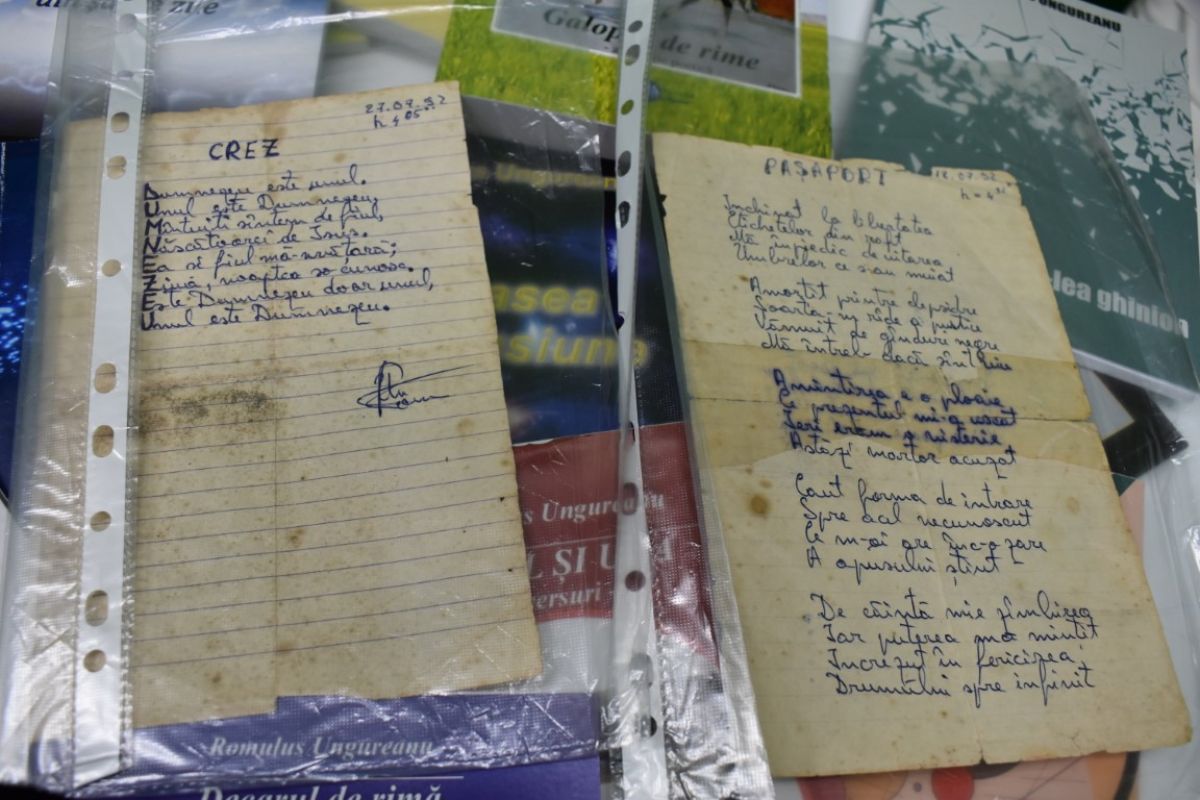 zile
Galop de rime
UNGUREANU
27.07.92
CREZ
Dumnezeu este unul.
Unul este Dumnezeu,
Mîntuiți sîntem de fiul,
Născătoarei de Isus.
Ea și fiul mă-nvățară;
Ziuă, noaptea so cunosc.
Este Dumnezeu doar unul,
Unul este Dumnezeu.
PAȘAPORT
18.07.92
Închinat la libertatea
Etichetelor din
Mă împiedic de uitarea
Umbrelor ce s-au muiat
printre
Soarta-mi rîde a justice
de gînduri negre
Mă întreb dacă sînt
Amintirea e o ploaie
Ce prezentul mi-a uscat
Ieri eram o visterie
Astăzi martor acuzat
Caut forma de intrare
Spre acel necunoscut
Ce m-ai zare
A apusului știut
De căință mie
Iar puterea m-a mințit
Încrezut în fericirea
Drumului spre infinit
asea
siune
dea ghinion
us Ungureanu
L ȘI U
ersuri
Romulus Ungureanu
Decarul de rimă